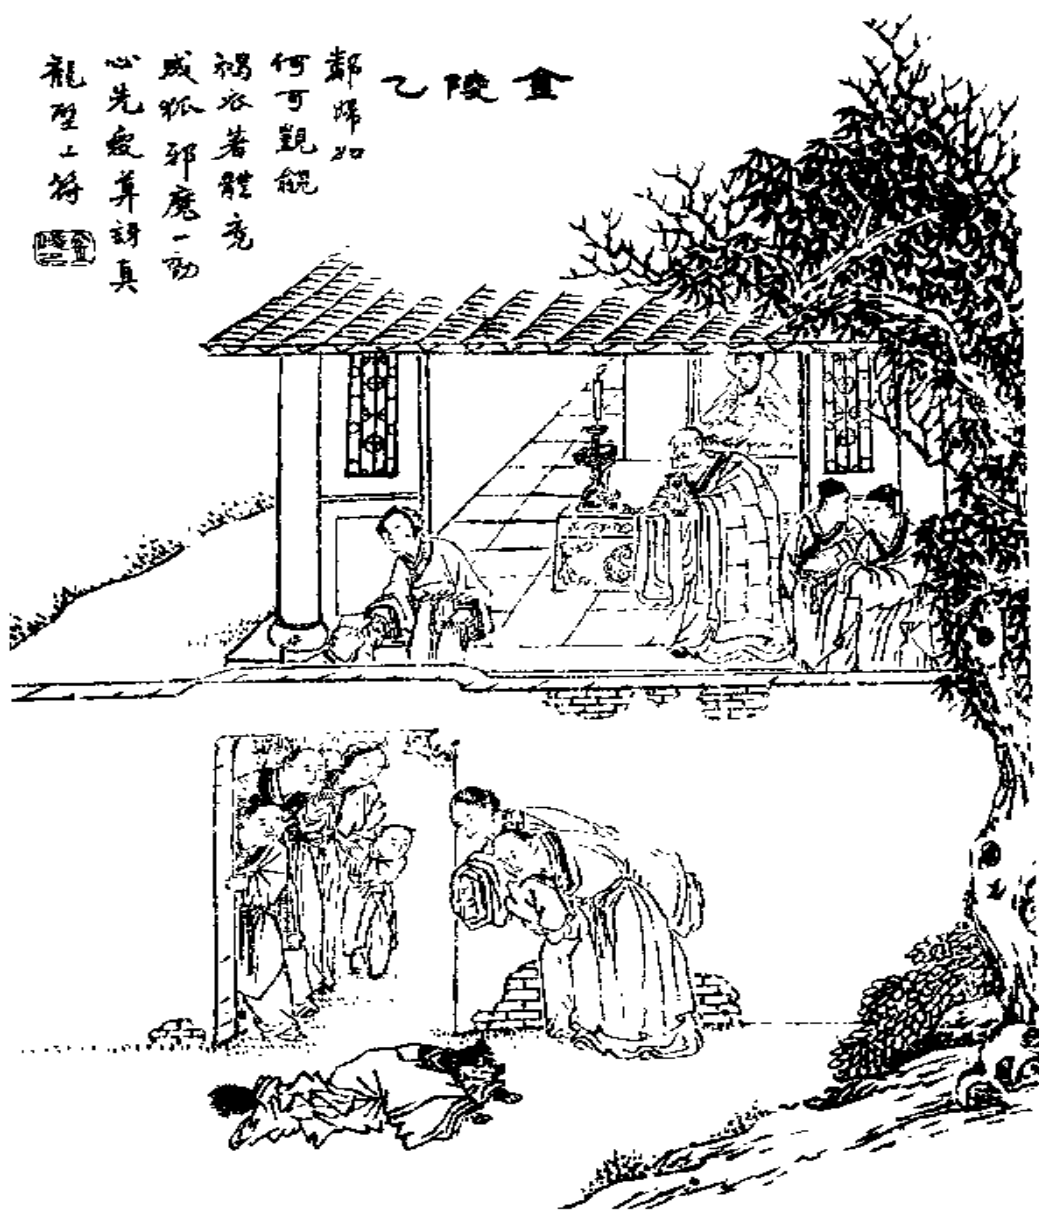 金陵乙
鄰婦如
何可覬覦
褐衣著體竟
成狐邪魔一動
心先變莫訝真
龍壁上符